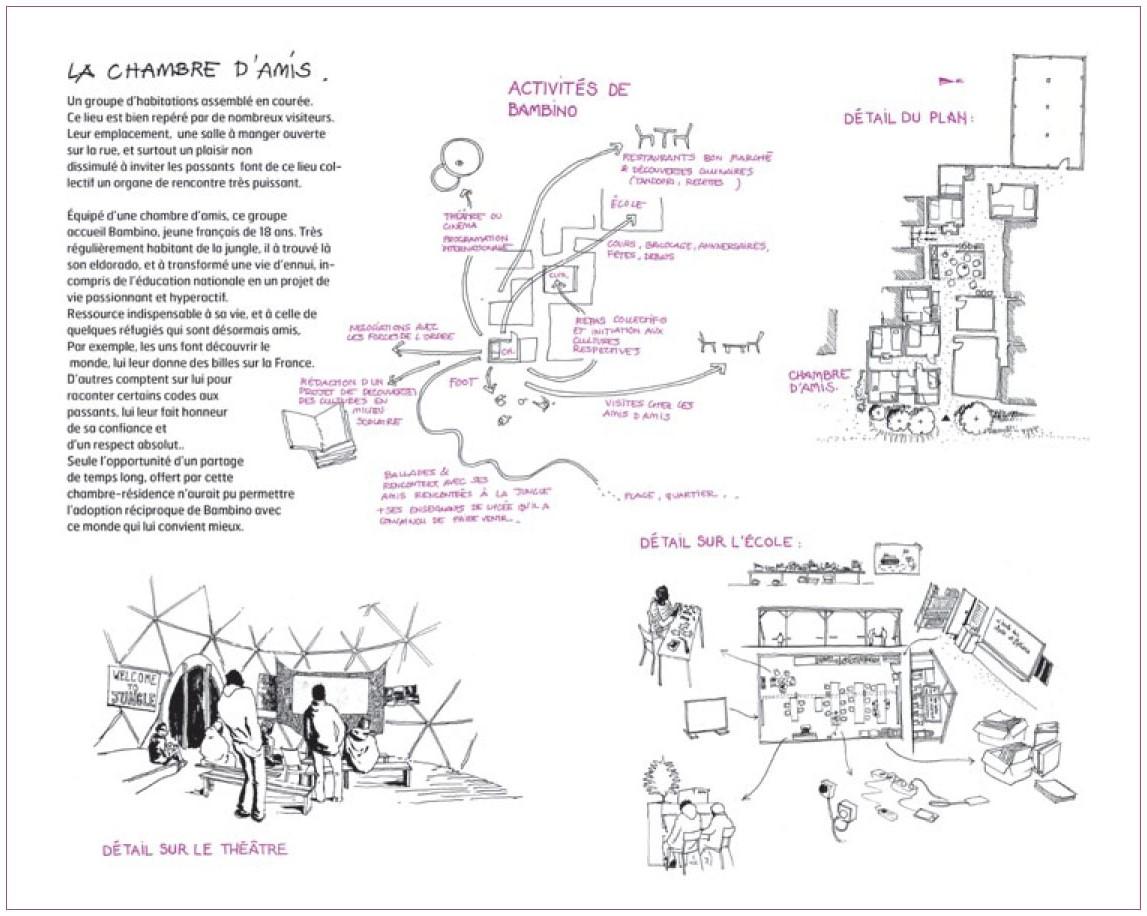 LA CHAMBRE D'AMIS.
Un groupe d'habitations assemblé en courée.
Ce lieu est bien repéré par de nombreux visiteurs.
Leur emplacement, une salle à manger ouverte
sur la rue, et surtout un plaisir non
dissimulé à inviter les passants font de ce lieu col-
lectif un organe de rencontre très puissant.
Équipé d'une chambre d'amis, ce groupe
accueil Bambino, jeune français de 18 ans. Très
régulièrement habitant de la jungle, il à trouvé là
son eldorado, et à transformé une vie d'ennui, in-
compris de l'éducation nationale en un projet de
vie passionnant et hyperactif.
Ressource indispensable à sa vie, et à celle de
quelques réfugiés qui sont désormais amis,
Par exemple, les uns font découvrir le
monde, lui leur donne des billes sur la France.
D'autres comptent sur lui pour
raconter certains codes aux
passants, lui leur fait honneur
de sa confiance et
d'un respect absolut..
Seule l'opportunité d'un partage
de temps long, offert par cette
chambre-résidence n'aurait pu permettre
l'adoption réciproque de Bambino avec
ce monde qui lui convient mieux.
ACTIVITÉS DE
BAMBINO
RESTAURANTS BON MARCHÉ
& DÉCOUVERTES CULINAIRES
(TANDOORI, RECETTES )
ÉCOLE
COURS, BRICOLAGE, ANNIVERSAIRES,
FÊTES, DÉBATS
THÉÂTRE OU
CINÉMA
PROGRAMATION
INTERNATIONALE
CUIS.
REPAS COLLECTIFS
ET INITIATION AUX
CULTURES
RESPECTIVES
NÉGOCIATIONS AVEC
LES FORCES DE L'ORDRE
CH.
RÉDACTION D'UN
PROJET DE DÉCOUVERTE
DES CULTURES EN
MILIEU
SCOLAIRE
FOOT
VISITES CHEZ LES
AMIS D'AMIS
BALLADES &
RENCONTRES AVEC SES
AMIS RENCONTRÉS À LA "JUNGLE"
+ SES ENSEIGNANTS DE LYCÉE QU'IL A
CONVAINCU DE FAIRE VENIR...
... PLACE, QUARTIER...
DÉTAIL DU PLAN:
CHAMBRE
D'AMIS.
DÉTAIL SUR L'ÉCOLE:
WELCOME
TO
JUNGLE
DÉTAIL SUR LE THÉÂTRE